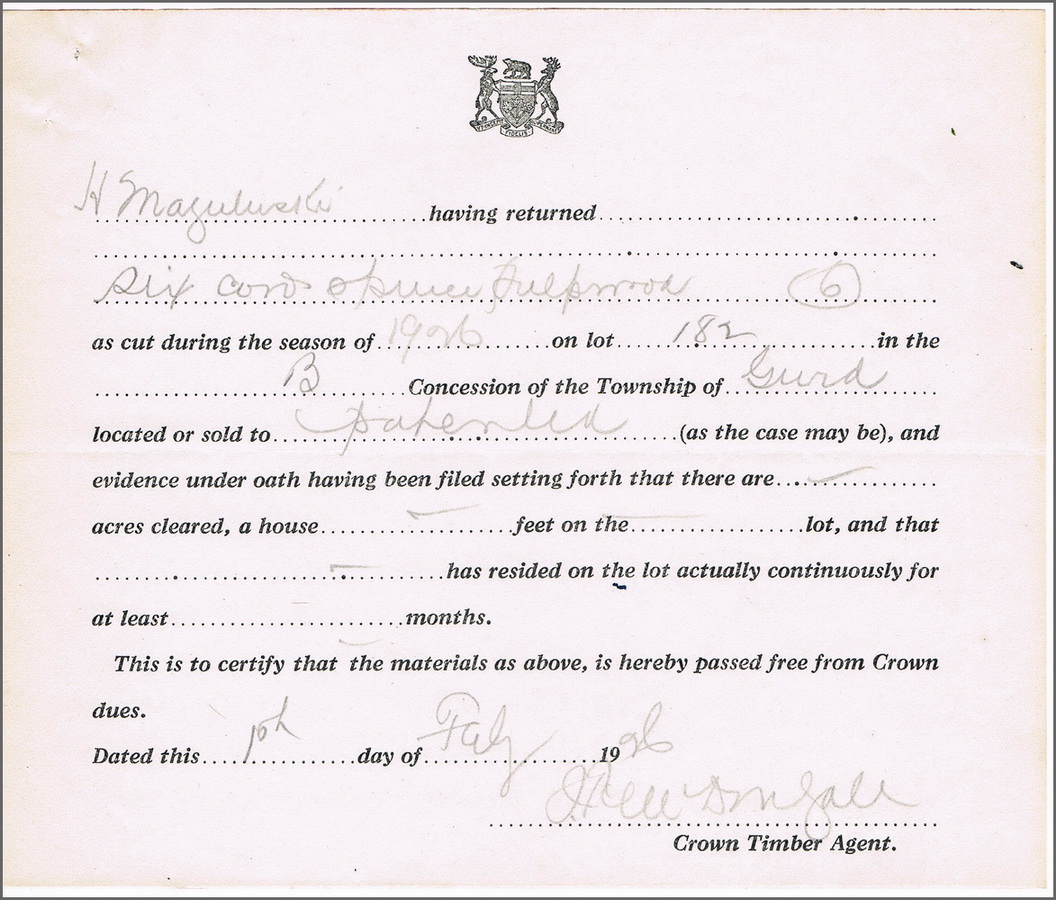 FIDELIS
H having returned
six cords spruce Pulpwood (6)
as cut during the season of 1926 on lot 182 in the
B Concession of the Township of Gurd
located or sold to patented (as the case may be), and
evidence under oath having been filed setting forth that there are —
acres cleared, a house — feet on the — lot, and that
— has resided on the lot actually continuously for
at least — months.
This is to certify that the materials as above, is hereby passed free from Crown
dues.
Dated this day of 1926
Crown Timber Agent.